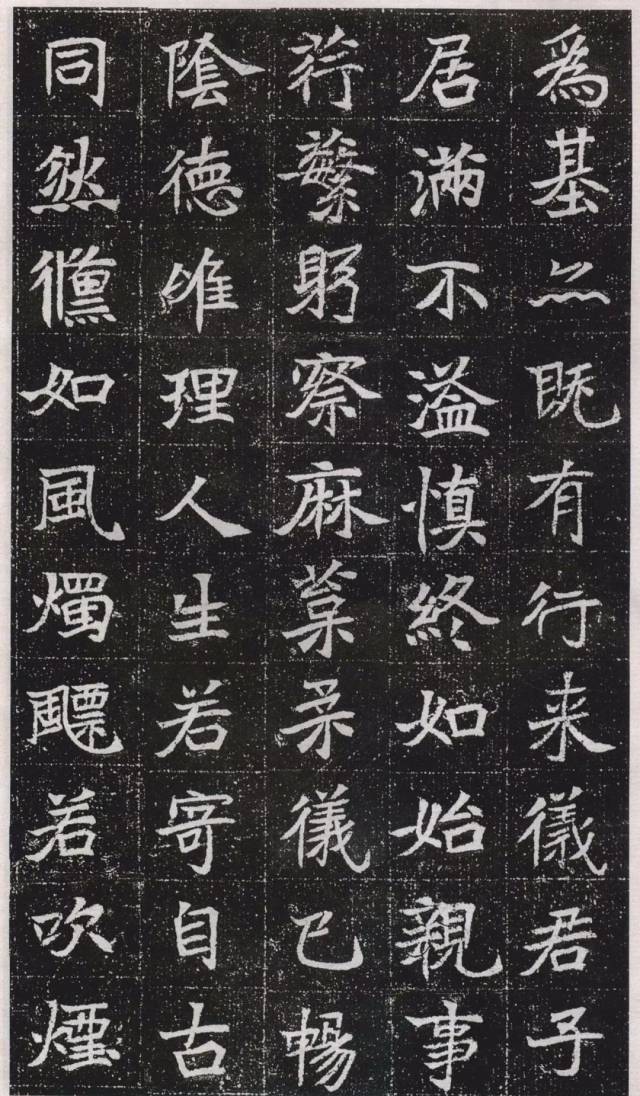 爲基亦既有行来儀君子
居滿不溢慎終如始親事
荇蘩躬察麻葈柔儀已暢
陰德唯理人生若寄自古
同然儵如風燭飄若吹煙